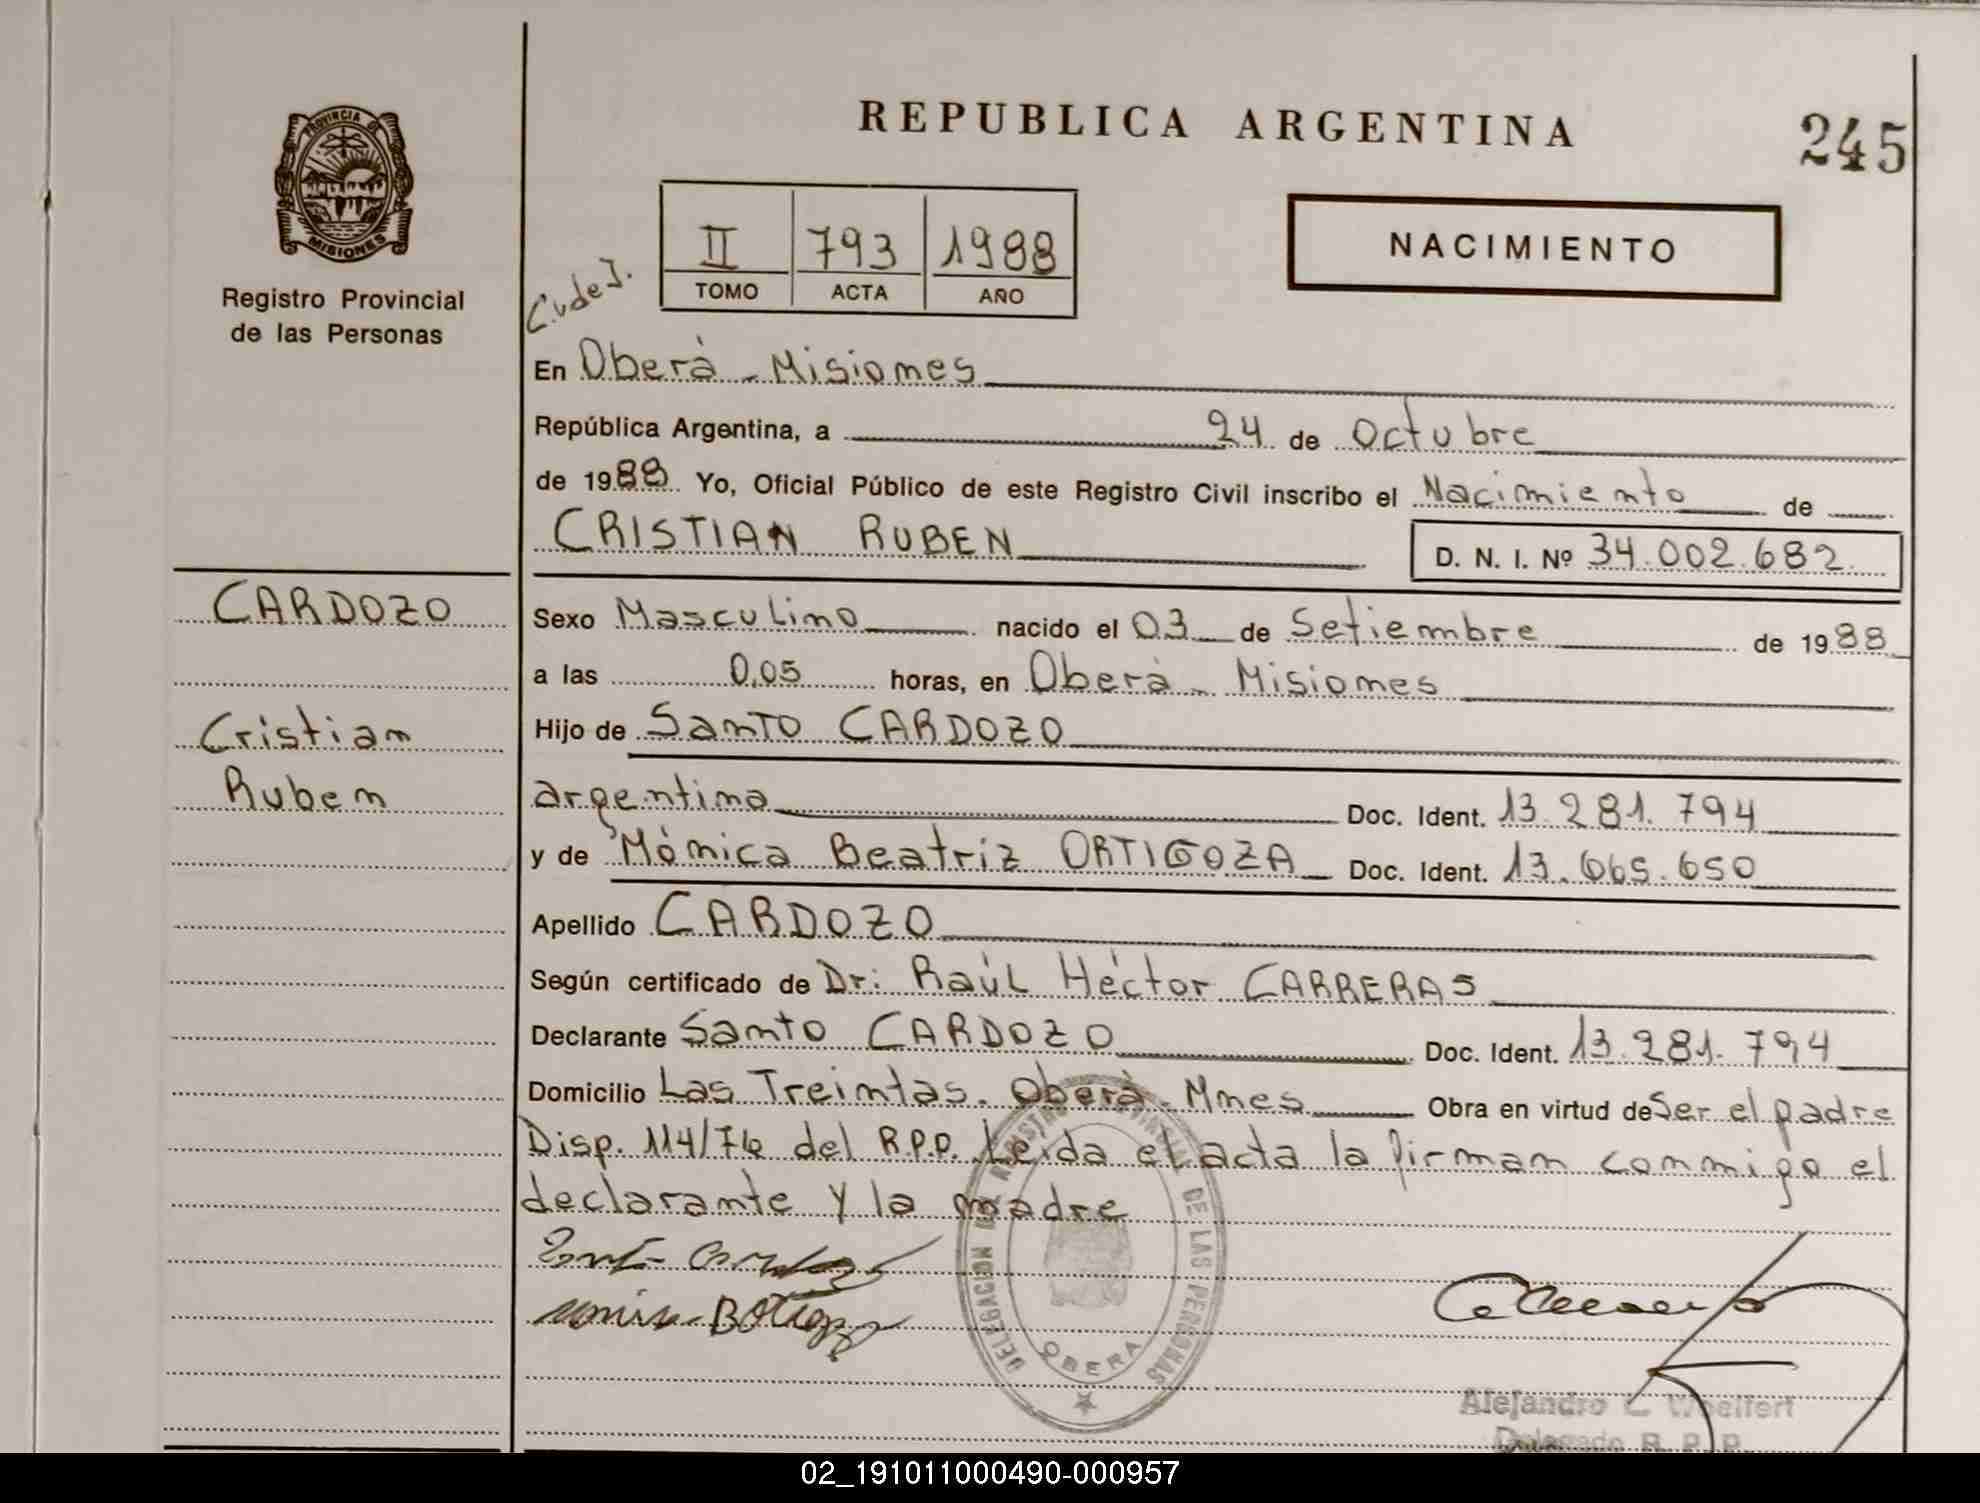 REPUBLICA ARGENTINA
245
PROVINCIA DE
MISIONES
Registro Provincial
de las Personas
II 793 1988
TOMO ACTA AÑO
NACIMIENTO
En Oberá - Misiones
República Argentina, a 24 de Octubre
de 1988 Yo, Oficial Público de este Registro Civil inscribo el Nacimiento de
CRISTIAN RUBEN
D. N. I. Nº 34.002.682
CARDOZO
Cristian
Ruben
Sexo Masculino nacido el 03 de Setiembre de 1988
a las 0,05 horas, en Oberá - Misiones
Hijo de Santo CARDOZO
argentina Doc. Ident. 13.281.794
y de Mónica Beatriz ORTIGOZA Doc. Ident. 13.065.650
Apellido CARDOZO
Según certificado de Dr: Raúl Héctor CARRERAS
Declarante Santo CARDOZO Doc. Ident. 13.281.794
Domicilio Las Treintas. Oberá. Mnes Obra en virtud de Ser el padre
Disp. 114/76 del R.P.P. Leída el acta la firman conmigo el
declarante y la madre
DELEGACION DEL REGISTRO PROVINCIAL DE LAS PERSONAS
OBERA
Alejandro C. Woelfert
Delegado R. P. P.
02_191011000490-000957